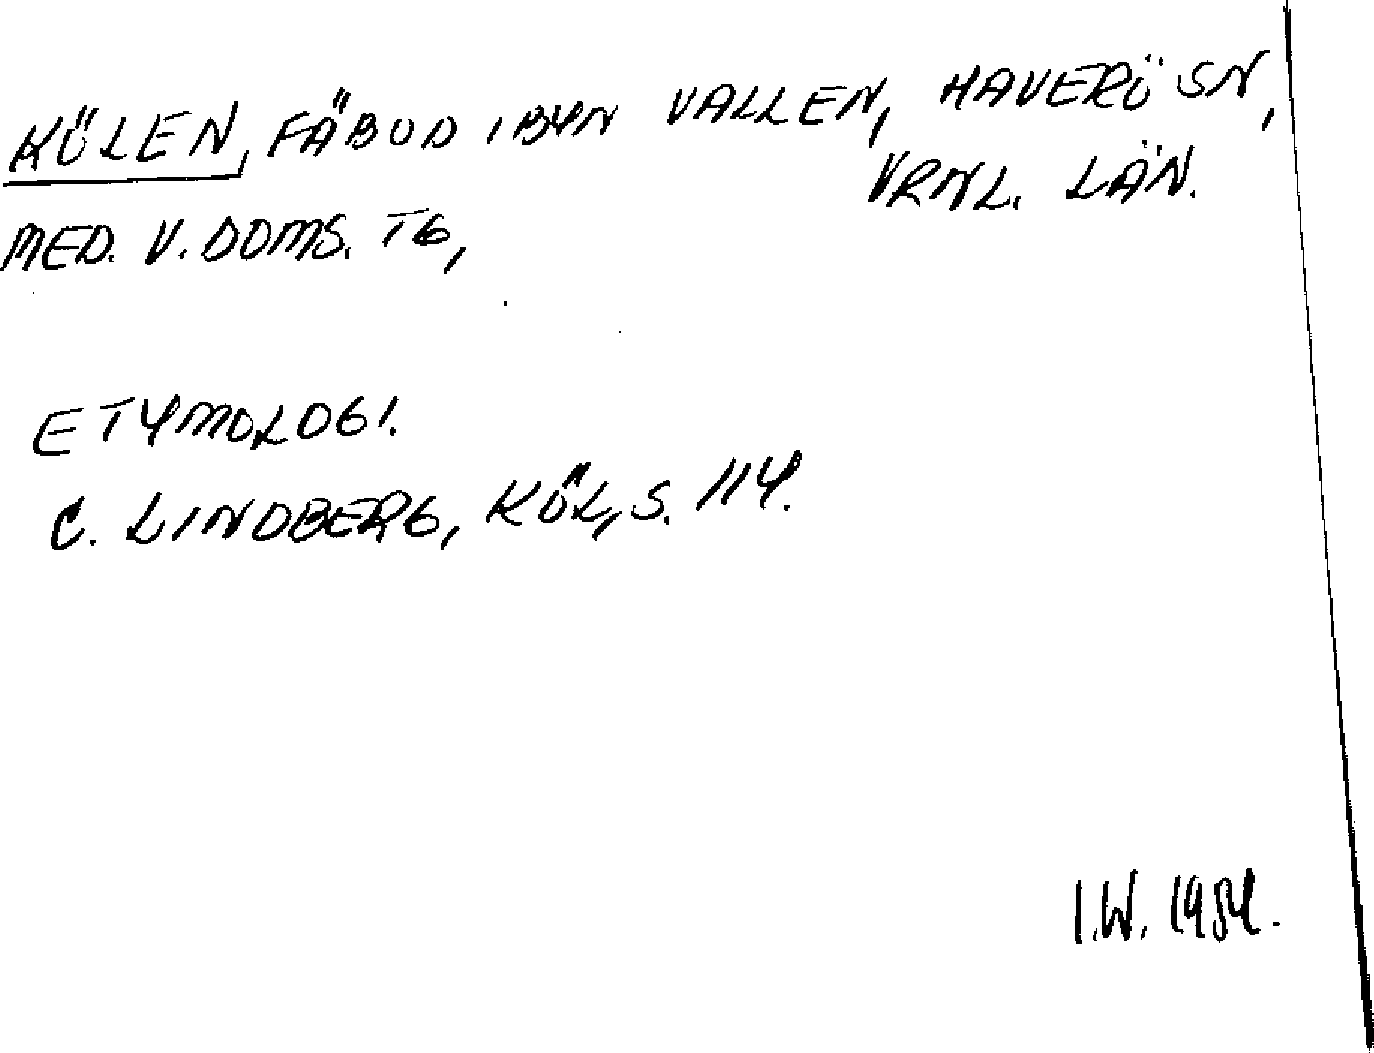 KÖLEN, FÄBOD I BYN VALLEN, HAVERÖ SN,
VRNL. LÄN.
MED. V. DOMS. TG,
ETYMOLOGI.
C. LINDBERG, KÖL, S. 114.
I.W. 1984.